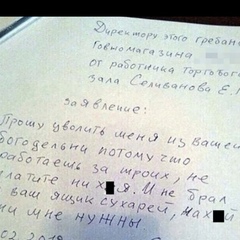 Директору этого гребано
Говномагазина
от работника торгового
зала Селиванова Е.
заявление:
Прошу уволить меня из вашей
богодельни потому что
работаешь за троих, не
платите ни х я. И не брал
ваш ящик сухарей, нах й
ни мне нужны
02.201